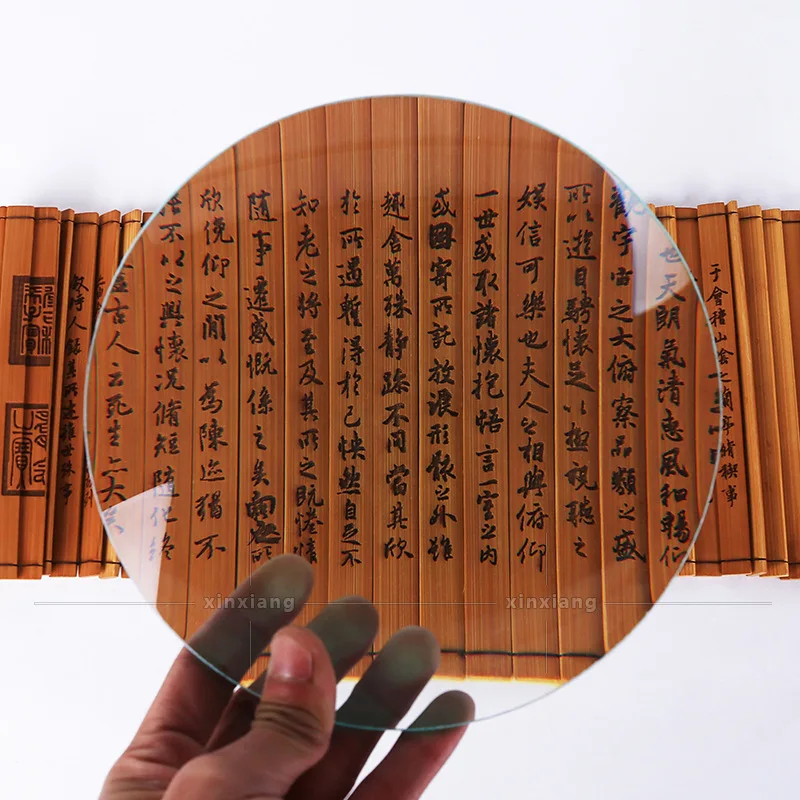 于會稽山陰之蘭亭脩稧事
也天朗氣清惠風和暢仰
觀宇宙之大俯察品類之盛
所以遊目騁懷足以極視聽之
娛信可樂也夫人之相與俯仰
一世或取諸懷抱悟言一室之內
或因寄所託放浪形骸之外雖
趣舍萬殊靜躁不同當其欣
於所遇暫得於己怏然自足不
知老之將至及其所之既惓情
隨事遷感慨係之矣向之所
欣俛仰之閒以為陳迹猶不
不以之興懷況脩短隨化終
古人云死生亦大矣
敘時人錄其所述雖世殊事
xinxiang
xinxiang